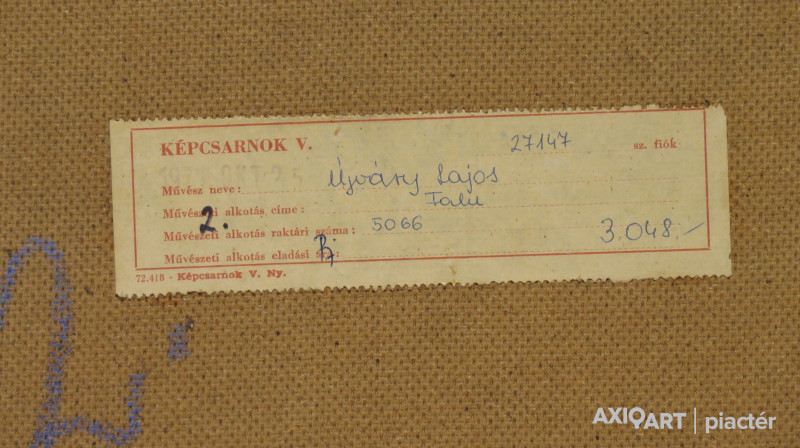 KÉPCSARNOK V. 27147 sz. fiók
Művész neve: Újváry Lajos
Művészeti alkotás címe: Falu
2.
Művészeti alkotás raktári száma: 5066
3.048.-
Művészeti alkotás eladási
72.418 - Képcsarnok V. Ny.
AXIOART | piactér